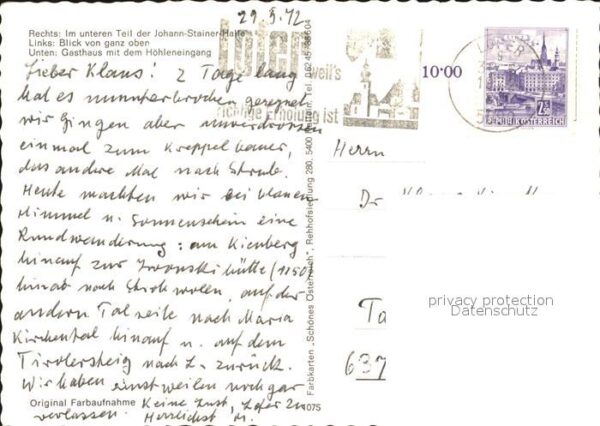 29.5.72
Rechts: Im unteren Teil der Johann-Stainer-Halle
Links: Blick von ganz oben
Unten: Gasthaus mit dem Höhleneingang
Lofer
weil's
richtige Erholung ist
LOFER
10·00
2.50
REPUBLIK ÖSTERREICH
Lieber Klaus! 2 Tage lang
hat es ununterbrochen geregnet
wir gingen aber unverdrossen
einmal zum Kreppelbauer,
das andere Mal nach Strub.
Heute machten wir bei blauem
Himmel u. Sonnenschein eine
Rundwanderung: am Kienberg
hinauf zur hütte (1150)
hinab nach , auf der
andern Talseite nach Maria
Kirchental hinauf u. auf dem
Tirolersteig nach L. zurück.
Wir haben einstweilen noch gar
Keine Lust, Lofer zu
verlassen. Herzlichst M.
Original Farbaufnahme
075
Farbkarten „Schönes Österreich", Rehhofsiedlung 280, 5400 Hallein, Tel. 06245
Herrn
Dr
Ta
637
privacy protection
Datenschutz